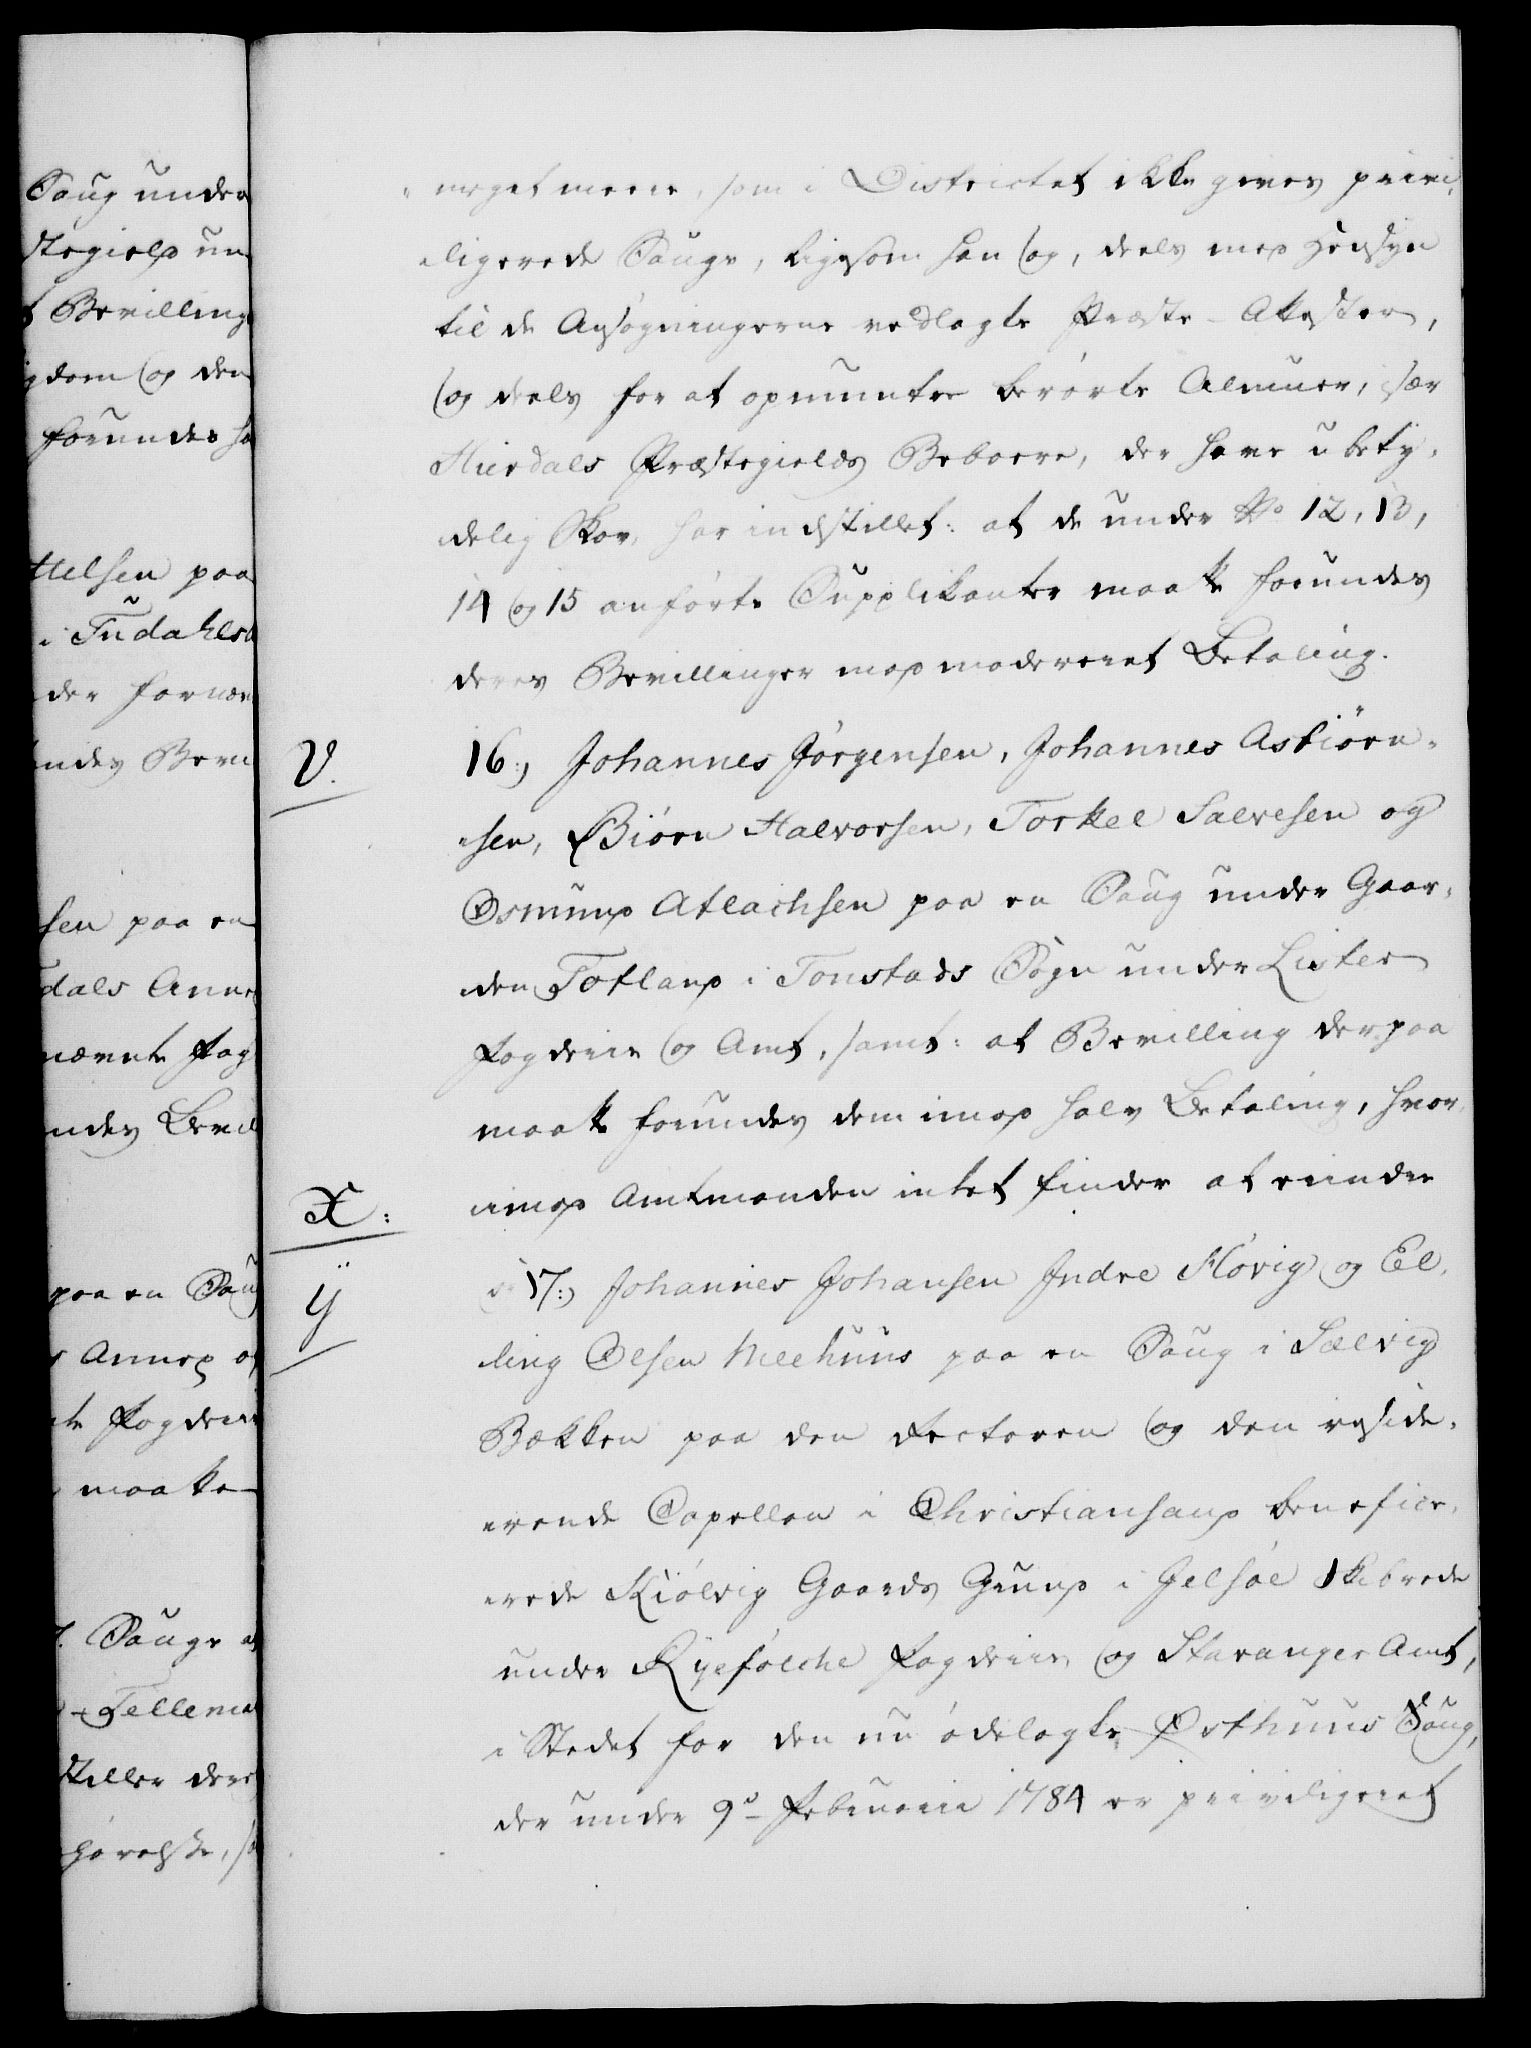 Saug under
stegield un
t Bevilling
gdom og den
forundes ha
ttelsen paa
i Tudahls
der fornæv
undes Bevil
sen paa en
dals Annex
nævnte Fog
undes Bevil
paa en Saug
s Annex og
te Fogderie
maatte
Sauge
Tellema
stiller dere
hørelse, så
meget meere, som i Districtet ikke gives privi-
ligerede Sauge, ligesom han og, deels med Hensyn
til de Ansøgningerne vedlagte Præste-Attester,
og deels for at opmuntre berørte Almuer, især
Hierdals Præstegields Beboere, der have ubety-
delig Skov, har indstillet: at de under No 12, 13,
14 og 15 anførte Supplikanter maatte forundes
deres Bevillinger mod modereret Betaling.
V.
16:) Johannes Jørgensen, Johannes Asbiørn-
sen, Biørn Halvorsen, Torkel Salvesen og
Osmund Atlachsen paa en Saug under Gaar-
den Fotland i Tonstads Sogn under Lister
Fogderie og Amt, samt: at Bevilling derpaa
maatte forundes dem imod halv Betaling, hvor-
imod Amtmanden intet finder at erindre
X:
ÿ
17:) Johannes Johansen Indre Høvig og El-
ling Olsen Meehuus paa en Saug i Sælvig
Bækken paa den Rectoren og den reside-
rende Capellan i Christiansand benefice-
rede Kiølvig Gaards Grund i Jelsøe Skibrede
under Ryefølche Fogderie og Stavanger Amt,
i Stedet for den nu ødelagte Østhuus Saug,
der under 9de Februarii 1784 er priviligeret